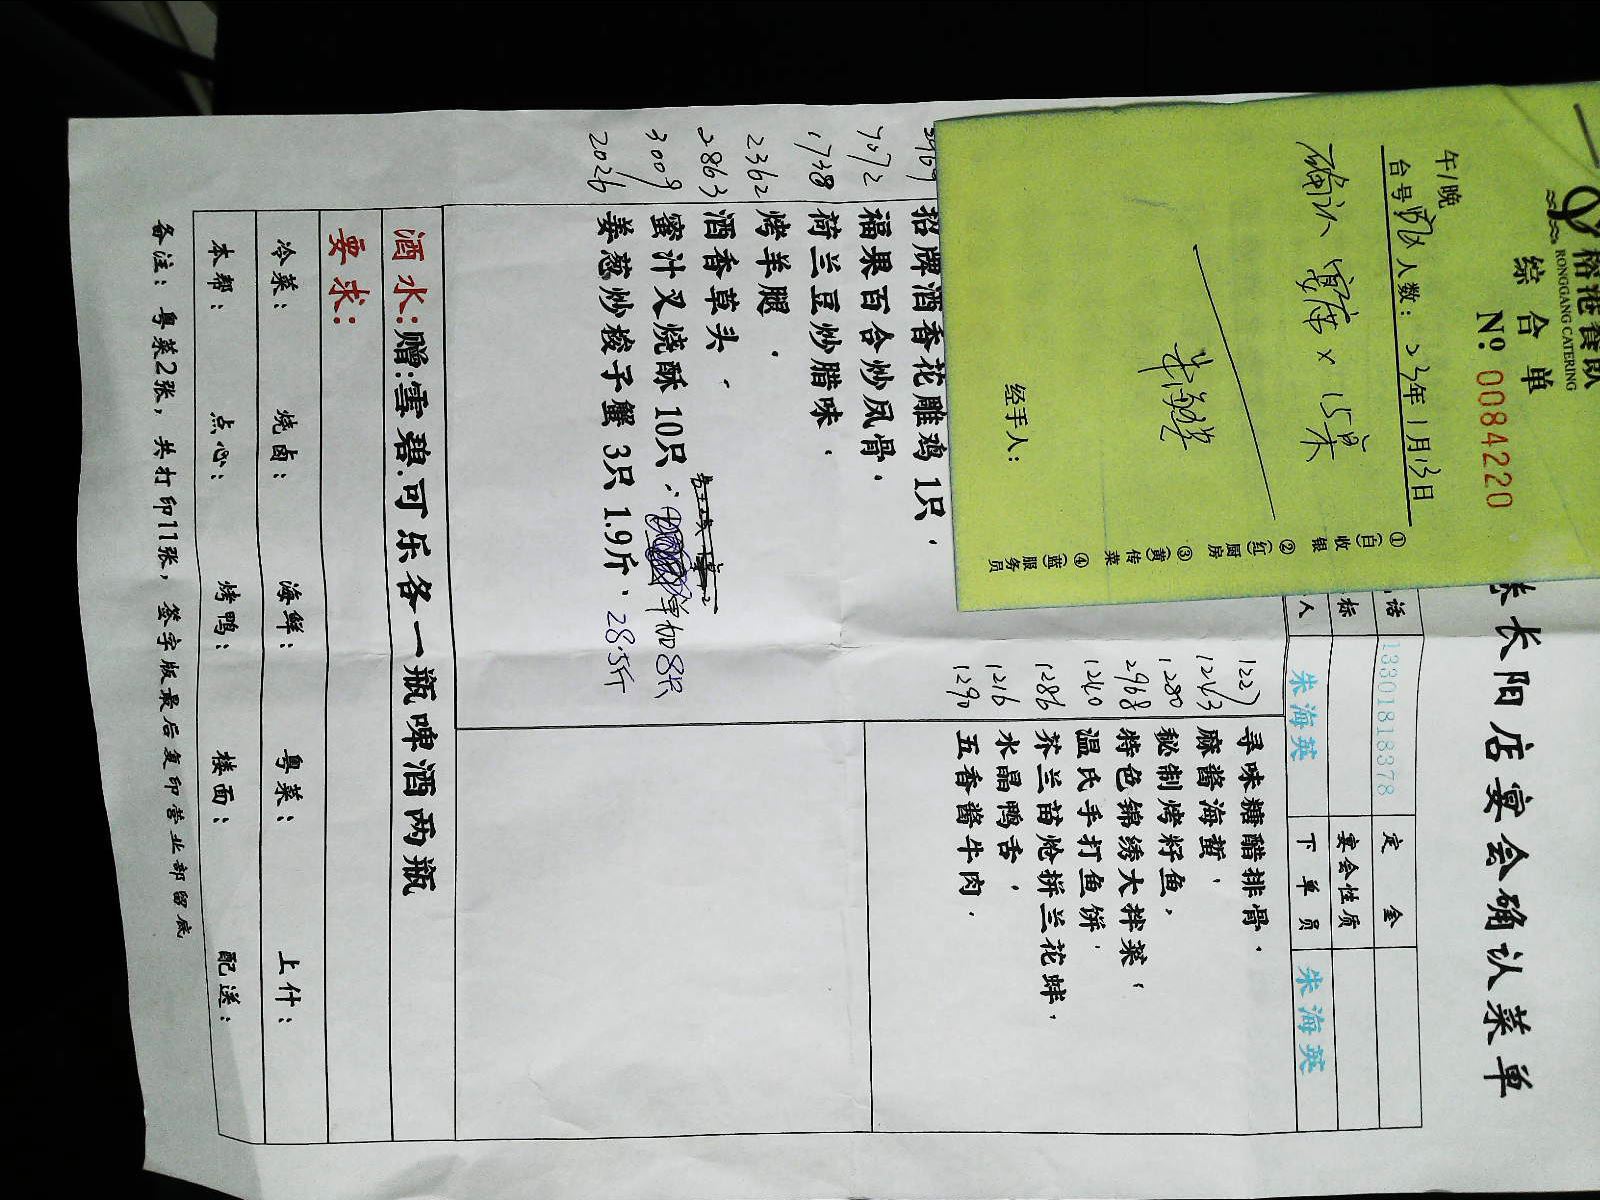 裕港餐饮
RONGGANG CATERING
综合单
№ 0084220
午/晚
台号 人数: 23年1月13日
确认 宴席 × 15桌
经手人:
①(白)收银
②(红)厨房
③(黄)传菜
④(蓝)服务员
长阳店宴会确认菜单
话 13301818378 定金
标 宴会性质
人 朱海英 下单员 朱海英
1227 寻味糖醋排骨.
1243 麻酱海蜇,
1280 秘制烤籽鱼,
2968 特色锦绣大拌菜,
1240 温氏手打鱼饼,
1286 芥兰苗炝拼兰花蚌,
1216 水晶鸭舌,
1290 五香酱牛肉.
招牌酒香花雕鸡 1只.
7072 福果百合炒凤骨.
1738 荷兰豆炒腊味.
2362 烤羊腿.
2863 酒香草头,
3009 蜜汁叉烧酥 10只, 单加8只
2026 姜葱炒梭子蟹 3只 1.9斤, 28.5斤
酒水:赠:雪碧.可乐各一瓶啤酒两瓶
要求:
冷菜: 烧卤: 海鲜: 粤菜: 上什:
本帮: 点心: 烤鸭: 楼面: 配送:
备注: 粤菜2张, 共打印11张, 签字版最后复印营业部留底